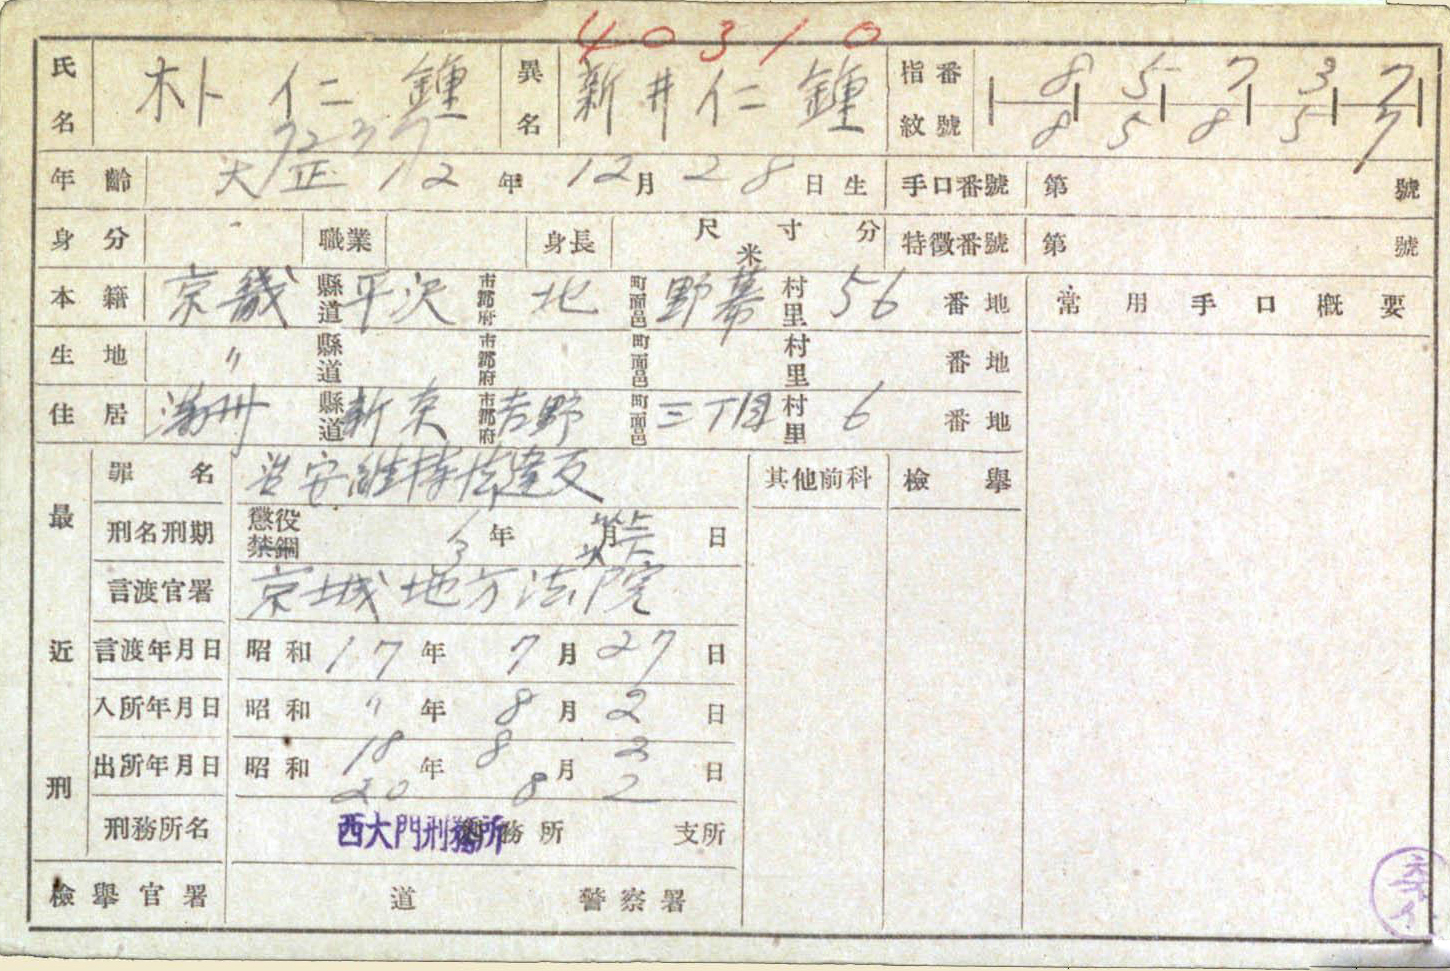 40310
氏名 朴仁鍾 異名 新井仁鍾 指紋番號 8 5 7 3 7
8 5 8 5 7
年齡 大正12年12月28日生 手口番號 第 號
身分 職業 身長 尺寸分 米 特徵番號 第 號
本籍 京畿 縣道 平沢 市郡府 地 町面邑 野幕 村里 56 番地 常用手口概要
生地 〃 縣道 市郡府 町面邑 村里 番地
住居 滿州 縣道 新京 市郡府 吉野 町面邑 三丁目 村里 6 番地
最近刑
罪名 治安維持法違反 其他前科 檢擧
刑名刑期 懲役 禁錮 年 月 日
言渡官署 京城地方法院
言渡年月日 昭和17年7月27日
入所年月日 昭和〃年8月2日
出所年月日 昭和18年8月2日
20 8 2
刑務所名 西大門刑務所 務所 支所
檢擧官署 道 警察署